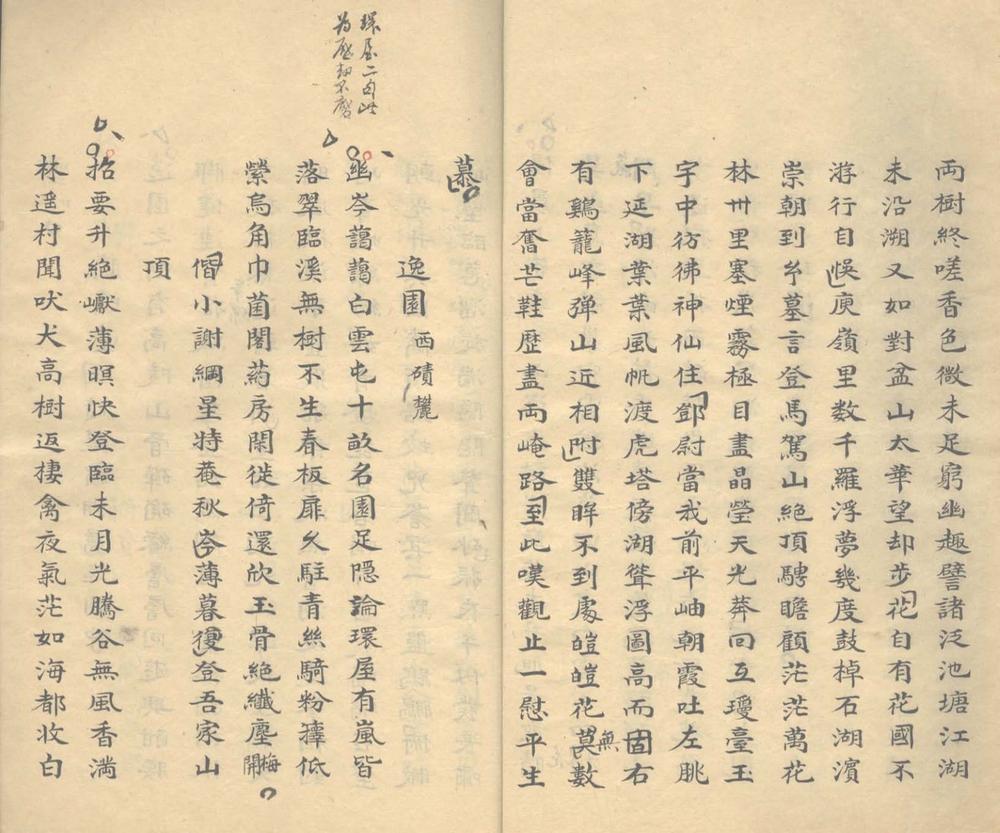 兩樹終嗟香色微未足窮幽趣譬諸泛池塘江湖
未沿溯又如對盆山太華望却步花自有花國不
游行自悞庾嶺里数千羅浮夢幾度鼓棹石湖濱
崇朝到乡墓言登馬駕山絕頂騁瞻顧茫茫萬花
林卅里塞煙霧極目盡晶瑩天光莽回互瓊臺玉
宇中彷彿神仙住鄧尉當我前平岫朝霞吐左眺
下延湖葉葉風帆渡虎塔傍湖聳浮圖高而固右
有鷄籠峰弹山近相附雙眸不到處皚皚花莫数
無
會當奮芒鞋歷盡両崦路至此嘆觀止一慰平生
慕
逸園 西磧麓
巫岑藹藹白雲屯十畝名園足隱論環屋有嵐皆
落翠臨溪無樹不生春板扉久駐青絲騎粉籜低
縈烏角巾茵閣葯房閑徙倚還欣玉骨絕纖塵梅開
偕小謝綱星特菴秋岑薄暮復登吾家山
頂
招要升絕巘薄暝快登臨未月光騰谷無風香滿
林遥村聞吠犬高樹返棲禽夜氣茫如海都妆白
環屋二句此
為歷劫不磨